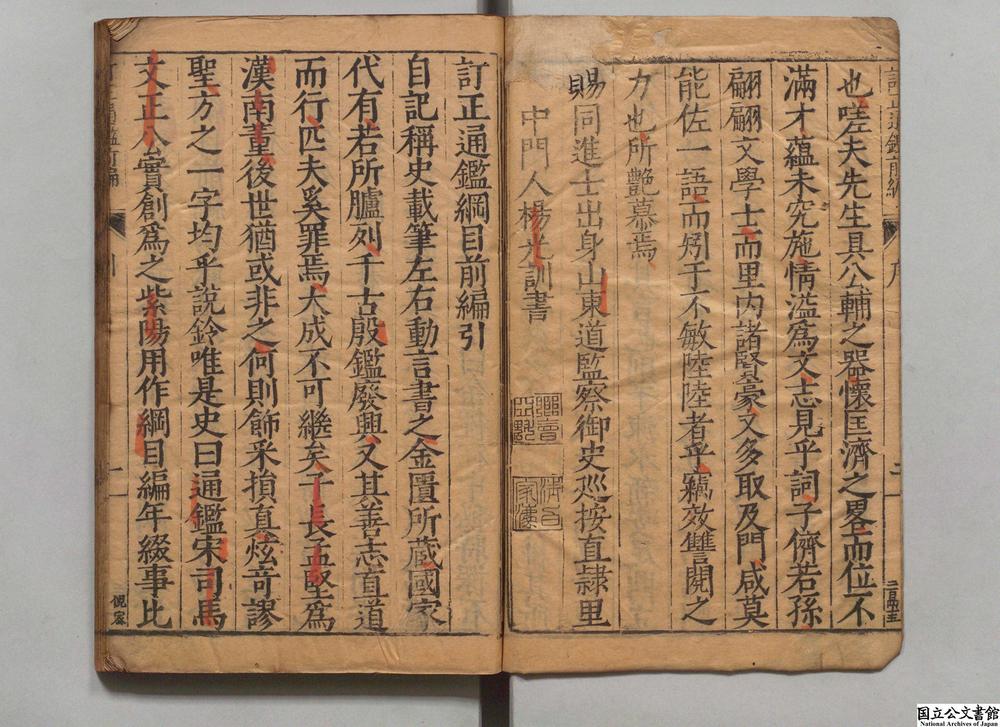 也嗟夫先生具公輔之器懷匡濟之畧而位不
滿才蘊未究施情溢為文志見乎詞子儕若孫
翩翩文學士而里内諸賢豪又多取及門咸莫
能佐一語而矧于不敏陸陸者乎竊效讐閱之
力也所艷慕焉
賜同進士出身山東道監察御史巡按直隸里
中門人楊光訓書
訂正通鑑綱目前編引
自記稱史載筆左右動言書之金匱所蔵國家
代有若所臚列千古殷鑑廢興又其善志直道
而行匹夫奚罪焉大成不可繼矣子長孟堅為
漢南董後世猶或非之何則飾采損真炫奇謬
聖方之一字均乎說鈴唯是史曰通鑑宋司馬
文正公實創爲之紫陽用作綱目編年綴事比
国立公文書館
National Archives of Japan